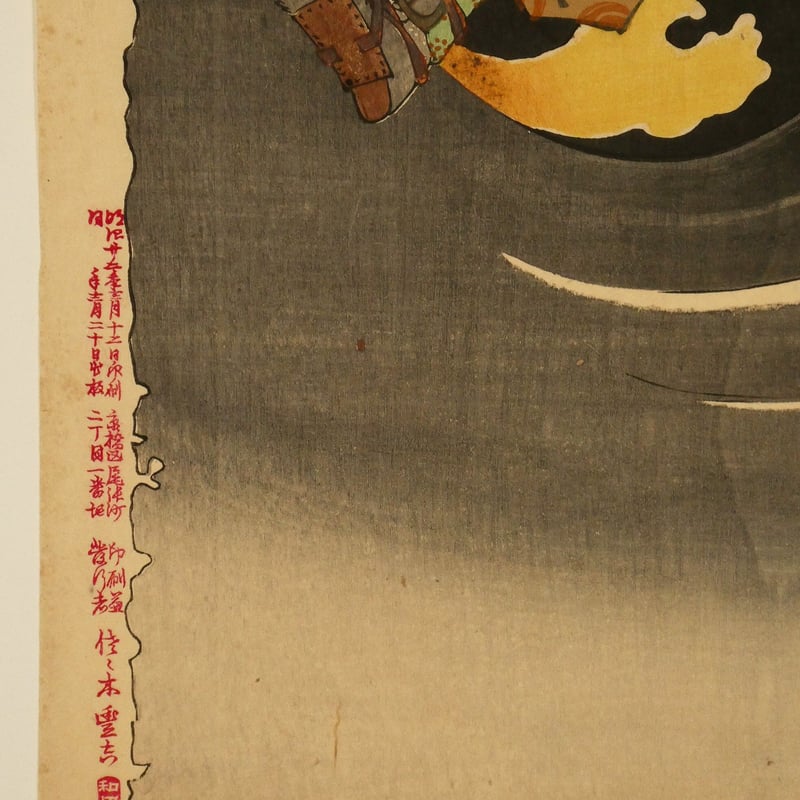 明治廿五年六月十二日印刷
同年六月二十日出板
京橋区尾張町
二丁目一番地
印刷兼
發行者
佐々木豐吉
和